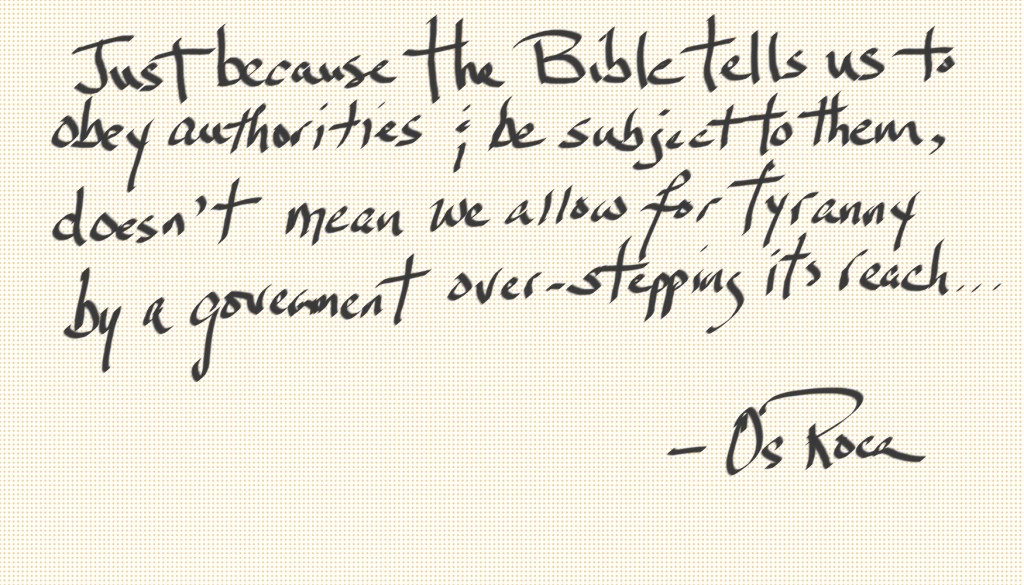 Just because the Bible tells us to
obey authorities & be subject to them,
doesn't mean we allow for Tyranny
by a government over-stepping its reach...
- Os Roca